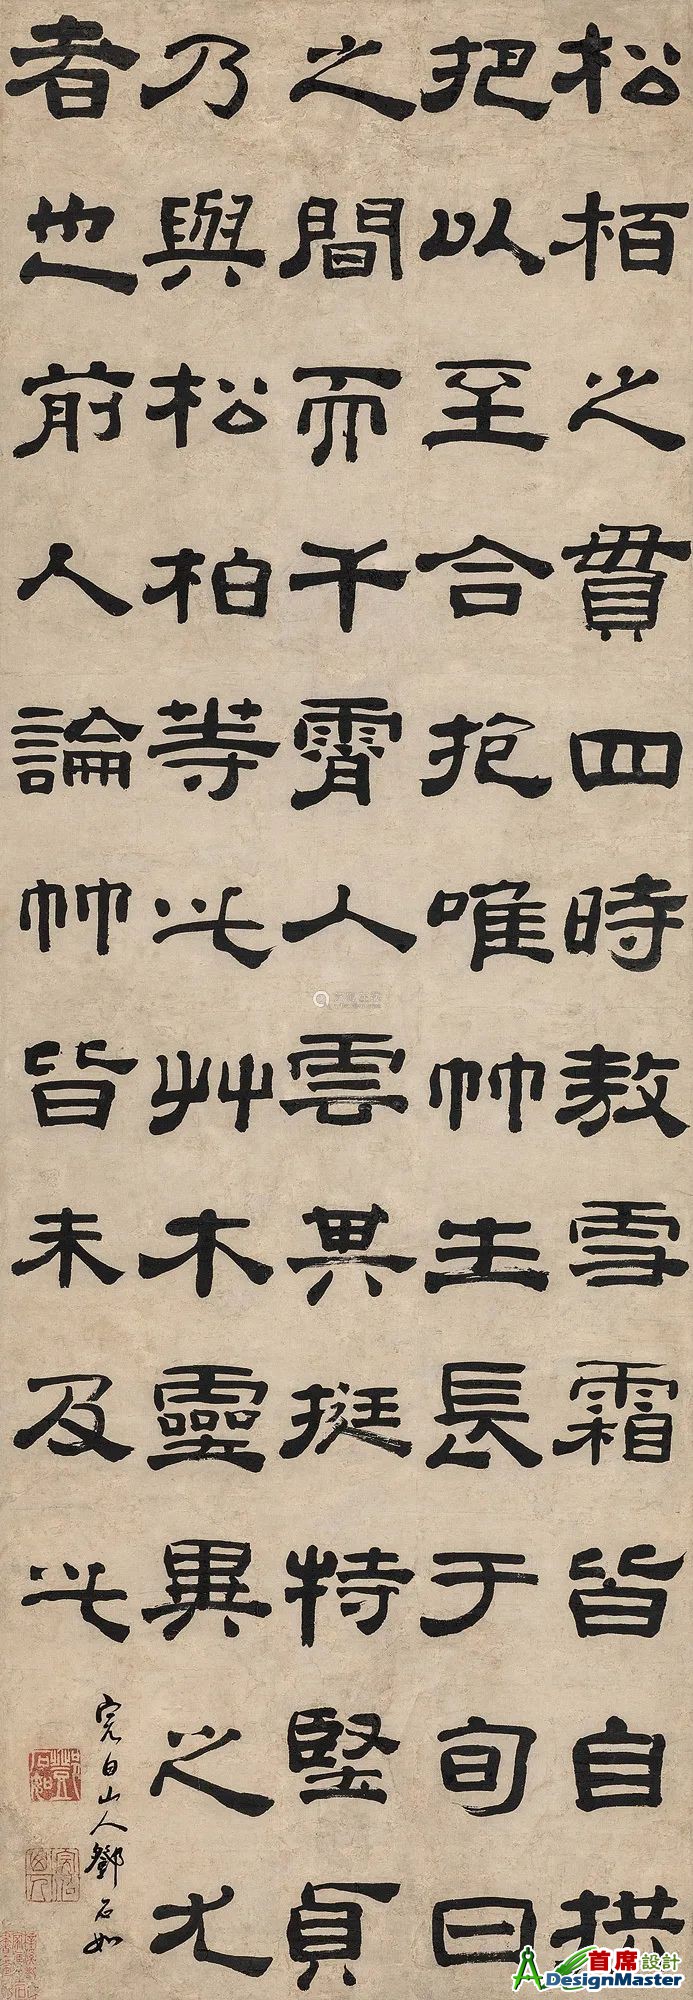 松栢之貫四時敖雪霜皆自拱
把以至合抱唯竹生長于旬日
之間而干霄入雲其挺特堅貞
乃與松柏等此艸木靈異之尤
者也前人論竹皆未及此
完白山人鄧石如
首席設計
DesignMaster